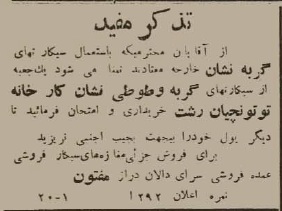 تذکر مفید
از آقایان محترمیکه باستعمال سیکارتهای
گربه نشان خارجه معتادند تمنا می شود یکجعبه
از سیکارتهای گربه وطوطی نشان کار خانه
توتونچیان رشت خریداری و امتحان فرمائید تا
دیگر پول خودرا بیجهت بجیب اجنبی نریزید
برای فروش جزئی مغازه‌های سیکار فروشی
عمده فروشی سرای دالان دراز مفتون
نمره اعلان ۲۹۲ ۱ ۱-۲۰